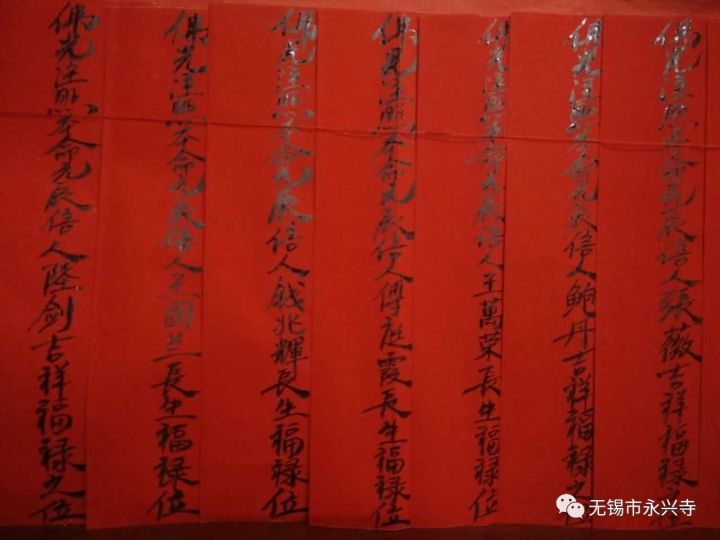 佛光注照本命元辰信人張薇吉祥福祿位
佛光注照本命元辰信人鮑丹吉祥福祿之位
佛光注照本命元辰信人王萬榮長生福祿位
佛光注照本命元辰信人傅庭霞長生福祿位
佛光注照本命元辰信人錢兆輝長生福祿位
佛光注照本命元辰信人王國兰長生福祿位
佛光注照本命元辰信人陸劍吉祥福祿之位
无锡市永兴寺